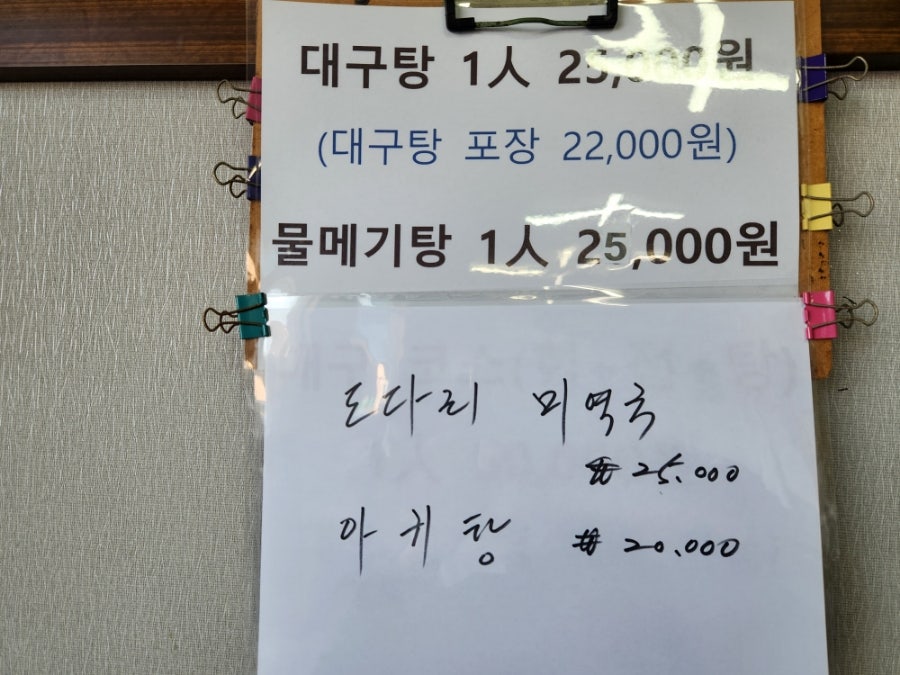 대구탕 1人 25,000원
(대구탕 포장 22,000원)
물메기탕 1人 25,000원
도다리 미역국
₩ 25.000
아귀탕 ₩ 20.000